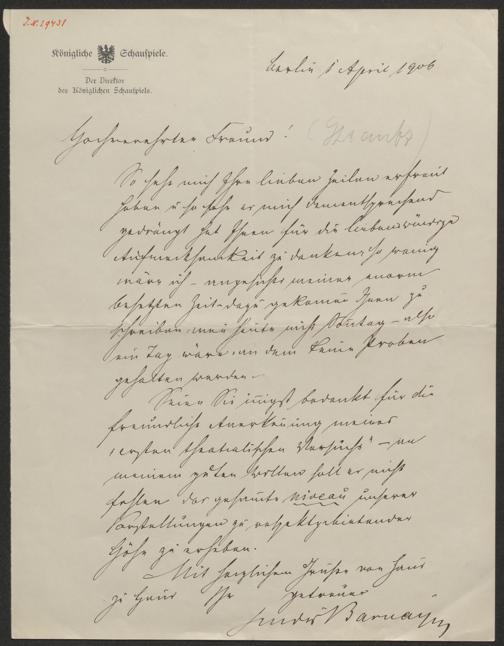 I.N. 19431
Königliche Schauspiele.
Der Direktor
des Königlichen Schauspiels.
Berlin 1 April 1906
Hochverehrter Freund! (Strantz)
So sehr mich Ihre lieben Zeilen erfreut
haben u. so sehr es mich dementsprechend
gedrängt hat Ihnen für die liebenswürdige
Aufmerksamkeit zu danken, so wenig
wäre ich – angesichts meiner enorm
besetzten Zeit – dazu gekommen Ihnen zu
schreiben wenn heute nicht Sonntag – also
ein Tag wäre, an dem keine Proben
gehalten werden. –
Seien Sie innigst bedankt für die
freundliche Anerkennung meines
"ersten theatralischen Versuchs" – an
meinem guten Willen soll es nicht
fehlen das gesamte Niveau unserer
Vorstellungen zu respektgebietender
Höhe zu erheben.
Mit herzlichen Grüßen von Haus
zu Haus Ihr getreuer
Ludwig Barnay